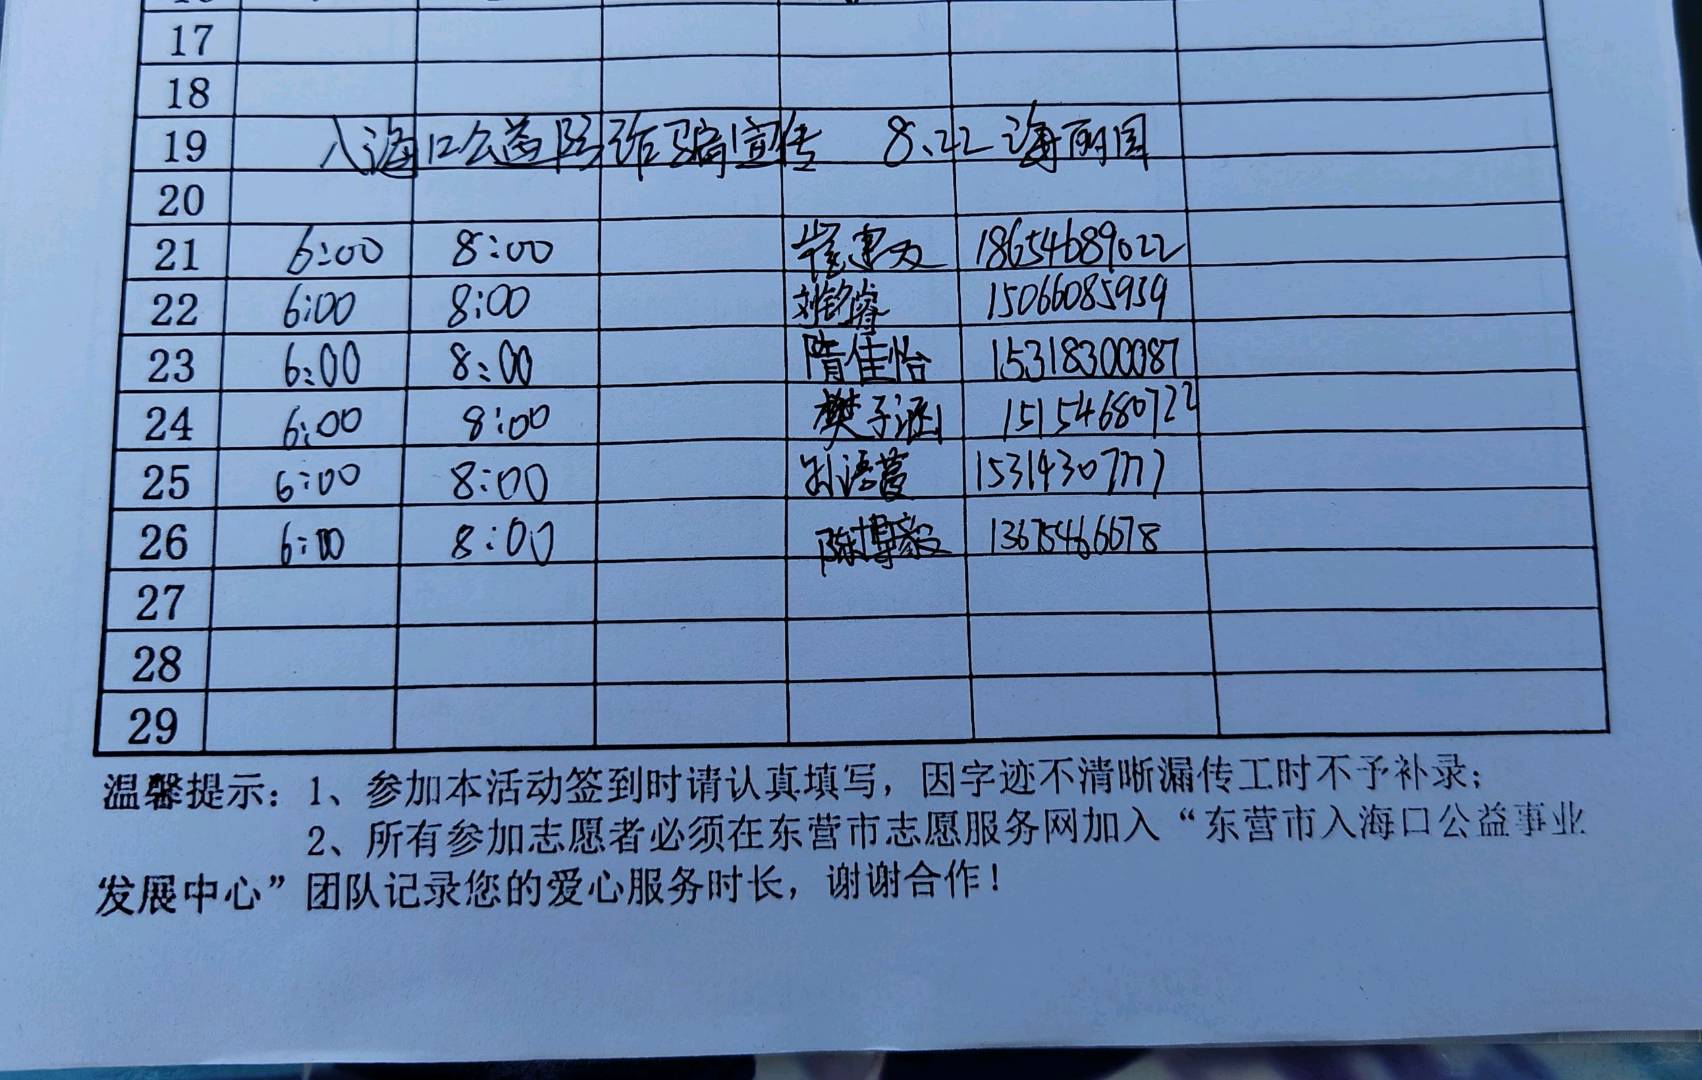 17
18
19 入海口公益防诈骗宣传 8、22 海丽园
20
21 6:00 8:00 崔建文 18654689022
22 6:00 8:00 刘铭睿 15066085939
23 6:00 8:00 隋佳怡 15318300087
24 6:00 8:00 樊子涵 15154680722
25 6:00 8:00 孙语蔓 15314307777
26 6:00 8:00 陈博毅 13675466678
27
28
29
温馨提示：1、参加本活动签到时请认真填写，因字迹不清晰漏传工时不予补录；
2、所有参加志愿者必须在东营市志愿服务网加入“东营市入海口公益事业
发展中心”团队记录您的爱心服务时长，谢谢合作！